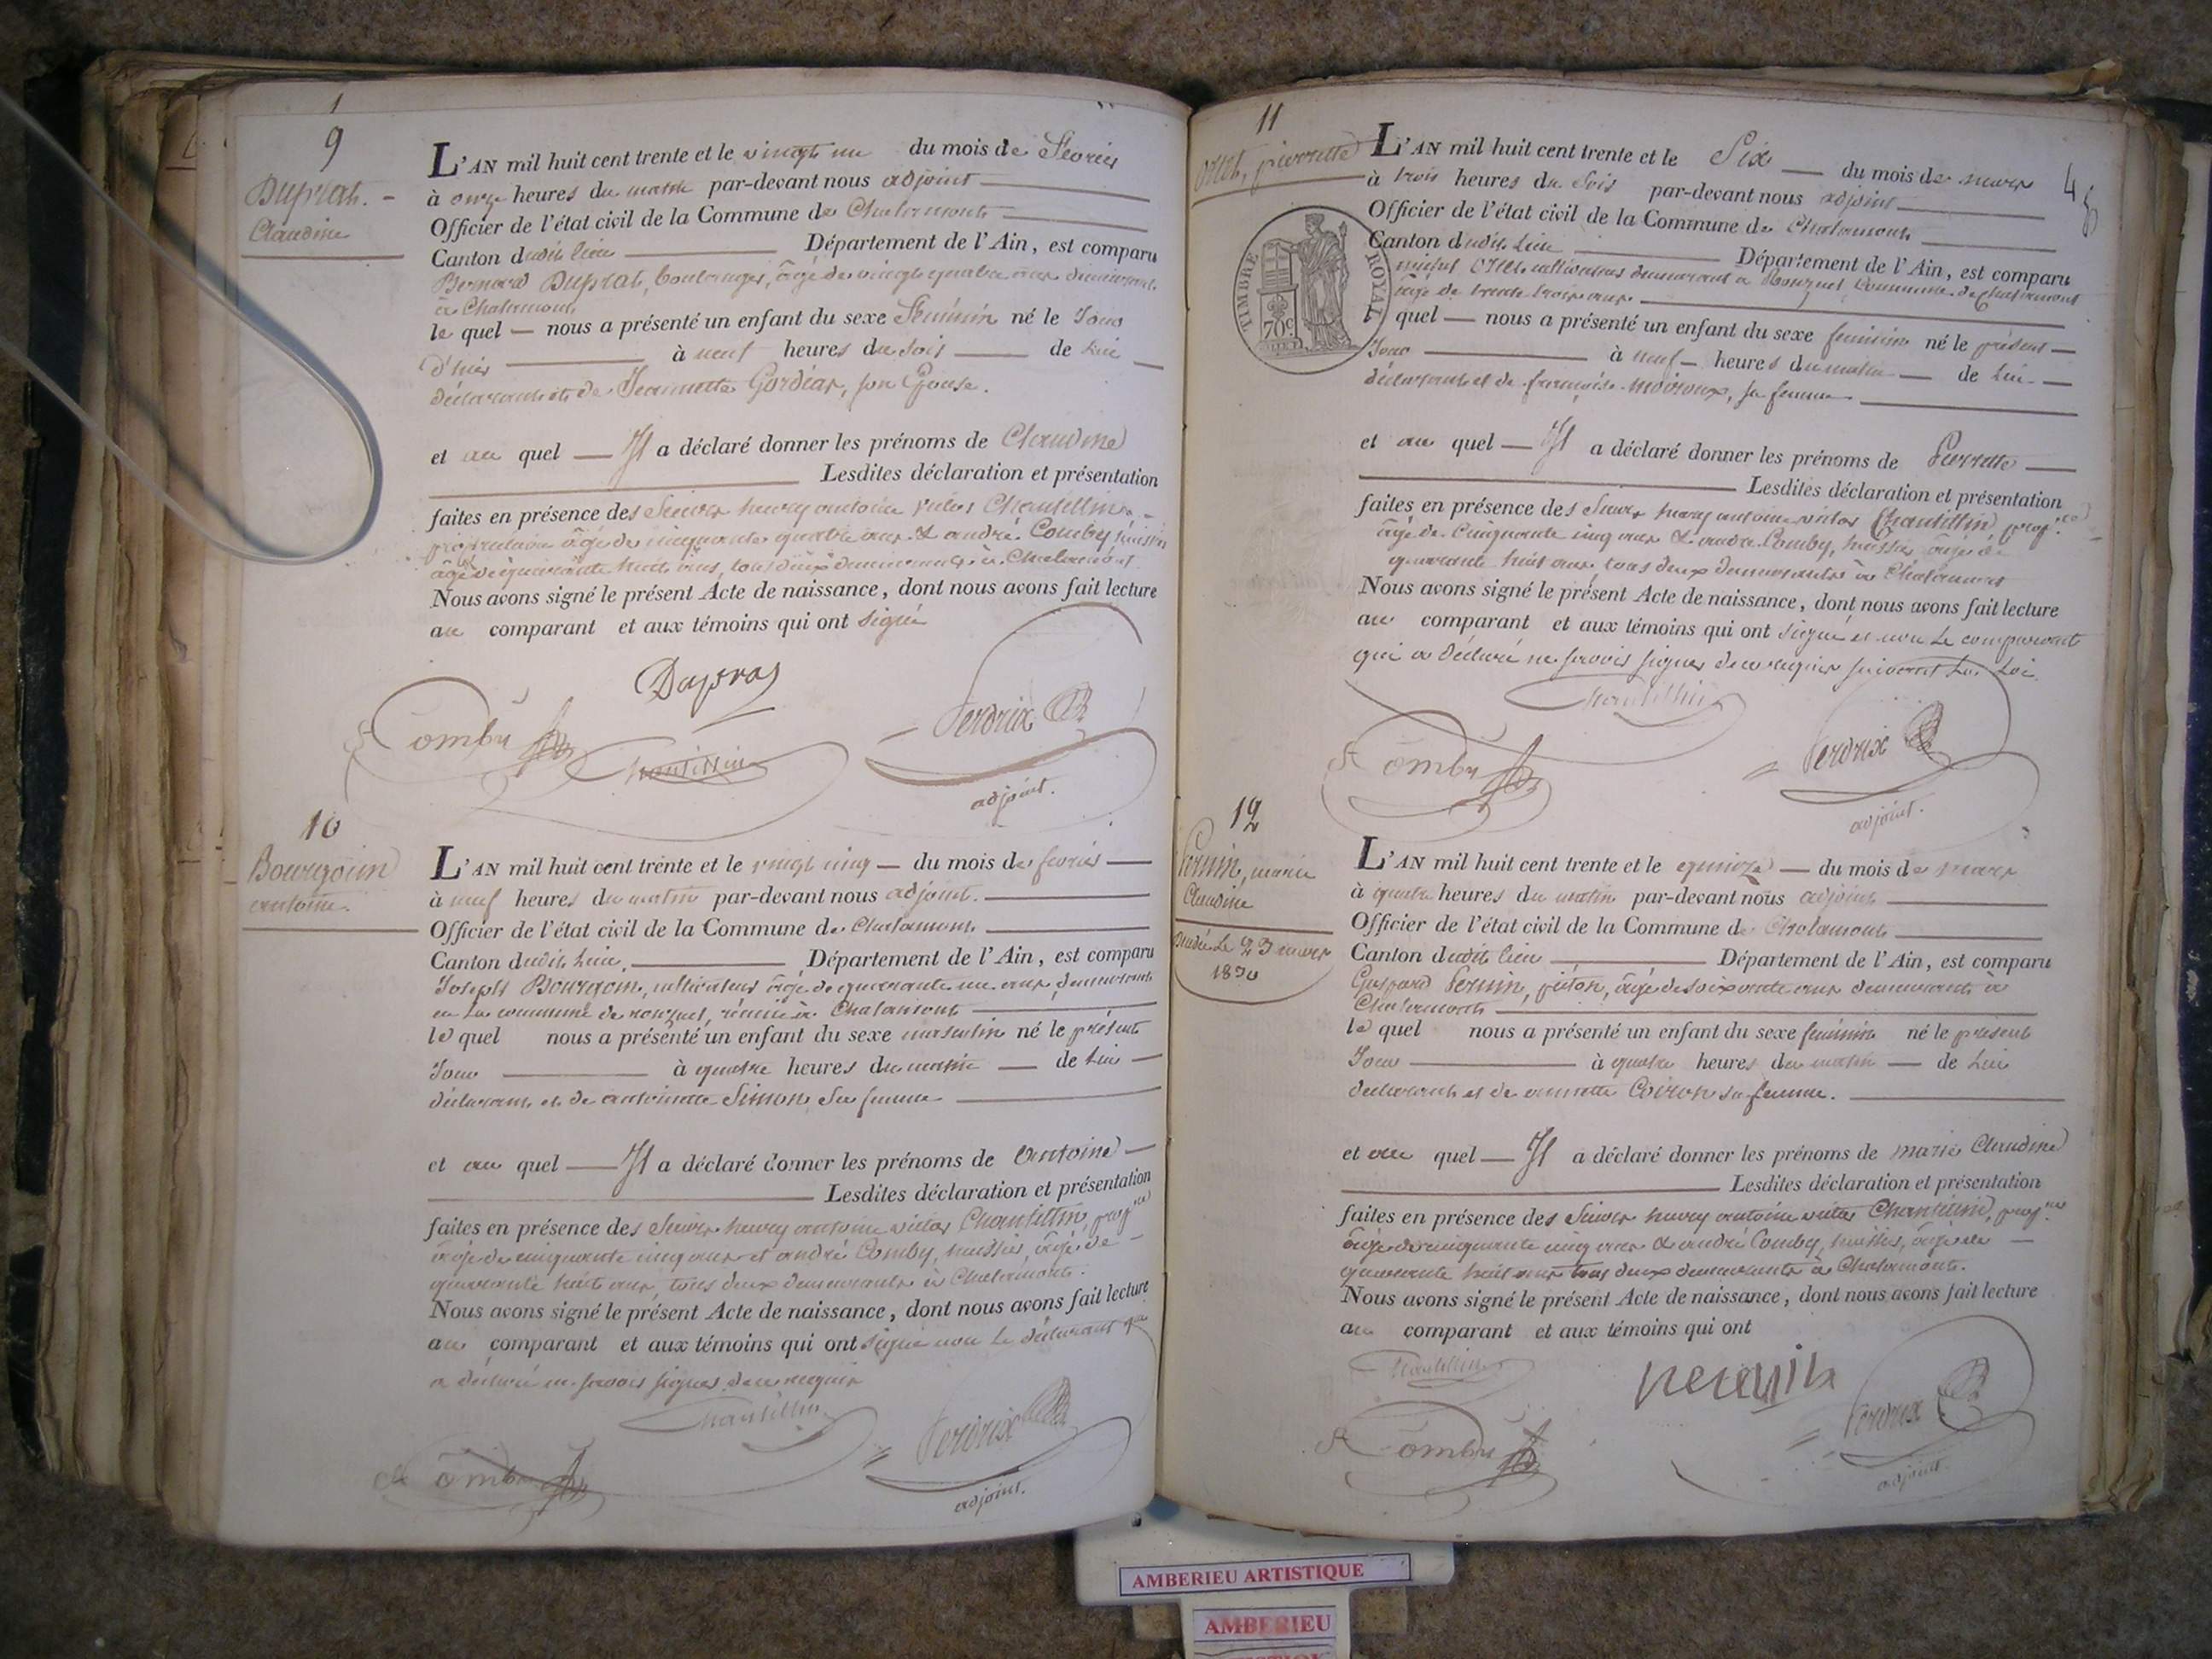 9
Duprat.
Claudine
L'AN mil huit cent trente et le vingt un du mois de Février
à onze heures du matin par-devant nous adjoint
Officier de l'état civil de la Commune de Chalamont
Canton dudit lieu Département de l'Ain, est comparu
Bernard Duprat, boulanger, âgé de vingt quatre ans demeurant
à Chalamont
le quel nous a présenté un enfant du sexe Féminin né le Jour
d'hier à neuf heures du soir de Lui
déclarant et de Jeannette Gordéar, son Epouse.
et au quel Il a déclaré donner les prénoms de Claudine
Lesdites déclaration et présentation
faites en présence des Sieurs henry antoine victor Chantillin
propriétaire âgé de cinquante quatre ans & andré Comby huissier
âgé de quarante huit ans, tous deux demeurants à Chalamont
Nous avons signé le présent Acte de naissance, dont nous avons fait lecture
au comparant et aux témoins qui ont signé
Duprat
Comby
Chantillin
Perdrix
adjoint.
10
Bourgoin
antoine.
L'AN mil huit cent trente et le vingt cinq du mois de fevrier
à neuf heures du matin par-devant nous adjoint.
Officier de l'état civil de la Commune de Chalamont
Canton dudit Lieu. Département de l'Ain, est comparu
Joseph Bourgoin, cultivateur âgé de quarante un ans, demeurant
en la commune de ronzuel, réunie à Chalamont
le quel nous a présenté un enfant du sexe masculin né le présent
Jour à quatre heures du matin de Lui
déclarant et de antoinette Simon Sa femme
et au quel Il a déclaré donner les prénoms de Antoine
Lesdites déclaration et présentation
faites en présence des Sieurs henry antoine victor Chantillin, prop.re
âgé de cinquante cinq ans et andré Comby, huissier, âgé de
quarante huit ans, tous deux demeurants à Chalamont.
Nous avons signé le présent Acte de naissance, dont nous avons fait lecture
au comparant et aux témoins qui ont signé non le déclarant qui
a déclaré ne savoir signer de ce requis
Chantillin
Comby
Perdrix
adjoint.
11
Ollet, pierrette
4
TIMBRE ROYAL
70c
L'AN mil huit cent trente et le Six du mois de mars
à trois heures du Soir par-devant nous adjoint
Officier de l'état civil de la Commune de Chalamont
Canton dudit Lieu Département de l'Ain, est comparu
cultivateur demeurant à Ronzuel Commune de Chalamont
âgé de trente trois ans.
quel nous a présenté un enfant du sexe feminin né le présent
Jour à neuf heures du matin de Lui
déclarant et de françoise moiroux, sa femme
et au quel Il a déclaré donner les prénoms de Pierrette
Lesdites déclaration et présentation
faites en présence des Sieurs henry antoine victor Chantillin prop.re
âgé de Cinquante cinq ans & andré Comby, huissier âgé de
quarante huit ans, tous deux demeurants à Chalamont
Nous avons signé le présent Acte de naissance, dont nous avons fait lecture
au comparant et aux témoins qui ont signé et non Le comparant
qui a déclaré ne savoir signer de ce requis suivant La Loi
Chantillin
Comby
Perdrix
adjoint.
12
Pernin, marie
Claudine
Le 23 mars
1830
L'AN mil huit cent trente et le quinze du mois de mars
à quatre heures du matin par-devant nous adjoint
Officier de l'état civil de la Commune de Chalamont
Canton dudit lieu Département de l'Ain, est comparu
Gaspard Pernin, piéton, âgé de soixante ans demeurant à
Chalamont
le quel nous a présenté un enfant du sexe féminin né le présent
Jour à quatre heures du matin de Lui
déclarant et de annette Coiron sa femme.
et au quel Il a déclaré donner les prénoms de marie Claudine
Lesdites déclaration et présentation
faites en présence des Sieurs henry antoine victor Chantillin, prop.re
âgé de cinquante cinq ans & andré Comby, huissier, âgé de
quarante huit ans tous deux demeurants à Chalamont.
Nous avons signé le présent Acte de naissance, dont nous avons fait lecture
au comparant et aux témoins qui ont
Chantillin
Comby
Perdrix
adjoint.
AMBERIEU ARTISTIQUE
AMBERIEU